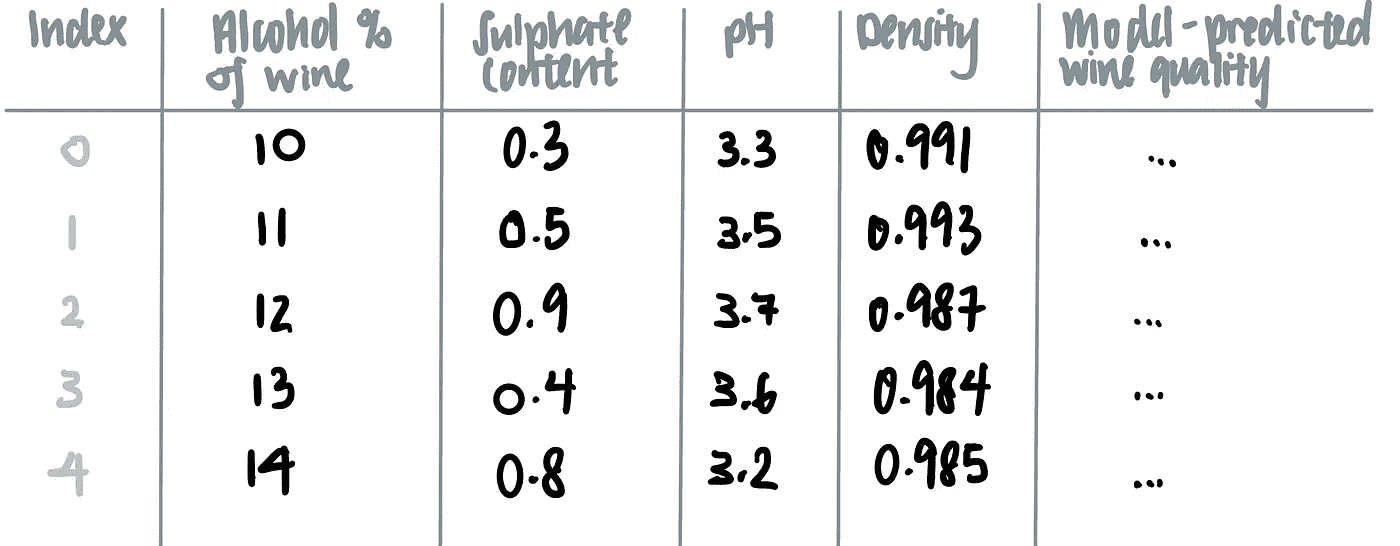 Index Alcohol % of wine Sulphate content pH Density Model-predicted wine quality
0 10 0.3 3.3 0.991 ...
1 11 0.5 3.5 0.993 ...
2 12 0.9 3.7 0.987 ...
3 13 0.4 3.6 0.984 ...
4 14 0.8 3.2 0.985 ...